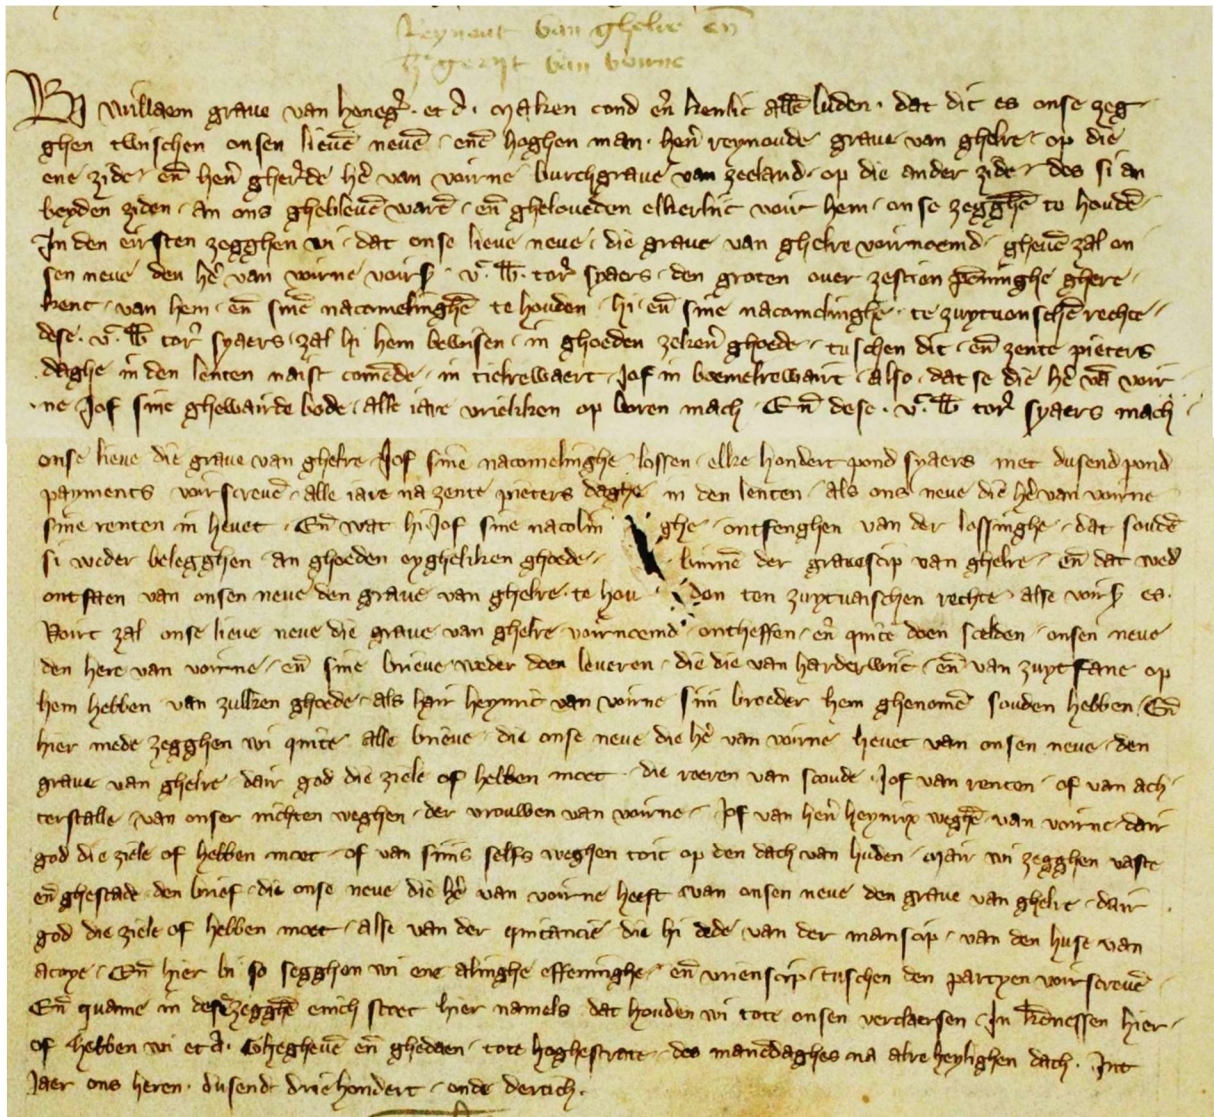 Reynout van ghelre en̄
h̄ gerijt van voirne
Wi willaem graue van heneg̉. et c̉. Maken cond en̄ kenlic allē luden. dat dit es onse zeg
ghen twisschen onsen lieuē neuē. enē hoghen man. hen̉ reynoude graue van ghelre. op die
ene zide. en̄ hen̉ gher̉de hē van voirne burchgraue van zeeland. op die ander zide. des si an
beyden ziden. an ons ghebleuē warē. en̄ gheloueden elkerlijc voir hem. onse zegghē to houdē.
In den eirsten zegghen wi. dat onse lieue neue. die graue van ghelre voirnoemd. gheuē zal on
sen neue den hē van voirne voirs̄. v.c lb. tor̉ syaers. den groten ouer zestien pēninghe ghere
kent. van hem. en̄ sinē nacomelinghē te houden. hi. en̄ sine nacomelinghē. te zuytuenschē rechte.
dese. v.c lb tor̉ syaers. zal hi hem bewisen. in ghoeden zekeren̉ ghoede. tuschen dit. en̄ zente pieters
daghe in den lenten naist comēde. in tielrewaert. Jof in boemelrewairt. also. dat se die hē vā voir
ne Jof sine ghewairde bode. alle iare vrieliken op boren mach. En̄ dese. v.c lb tor̉ syaers mach
onse lieue die graue van ghelre. Jof sine nacomelinghe lossen. elke hondert pond syaers met dusend pond
payments voirscreuē. alle iare na zente pieters daghe in den lenten. als ons neue die hē van voirne
sine renten in heuet. En̄ wat hi. Jof sine nacolin ghe. ontfenghen van der lossinghe. dat soudē
si weder belegghen. an ghoeden eyghelikken ghoede. binnē der graeescip van ghelre. en̄ dat wed̉
ontfaen van onsen neue den graue van ghelre. te hou den ten zuytuaischen rechte. alse voirs̄ es.
Voirt zal onse lieue neue die graue van ghelre. voirnoemd. ontheffen. en̄ quite doen scelden. onsen neue
den here van voirne. en̄ sine brieue weder doen leueren. die die van harderwijc. en̄ van zuytfane op
hem hebben van zulken ghoede. als hair heynric van voirne sijn broeder hem ghenomē souden hebben. En̄
hier mede zegghen wi quite alle brieue. die onse neue die hē van voirne heuet van onsen neue. den
graue van ghelre. dair god die ziele of hebben moet. die roeren van scoude. Jof van renten. of van ach
terstalle. van onser nichten weghen. der vrouwen van voirne. Jof van hen̉ heynrix weghē van voirne. dair
god die ziele of hebben moet. of van sijns selfs weghen toit op den dach van huden. Mair wi zegghen vaste
en̄ ghestade den brief. die onse neue die hē van voirne heeft van onsen neue den graue van ghelre. dair
god die ziele of hebben moet. alse van der quitancie. die hi dede. van der manscip. van den huse van
acoye. En̄ hier bi so segghen wi ene alinghe effeninghe. en̄ vrienscip. tuschen den partyen voirscreuē.
En̄ quame in desē zegghē einich stoet hier namels dat houden wi tote onsen verclaersen. In kēnessen hier
of hebben wi et c̉. Ghegheuē en̄ ghedaen. tote hoghestrate. des manēdaghes na alre heylighen dach. Int
Jaer ons heren. dusend driehondert. ende dertich.